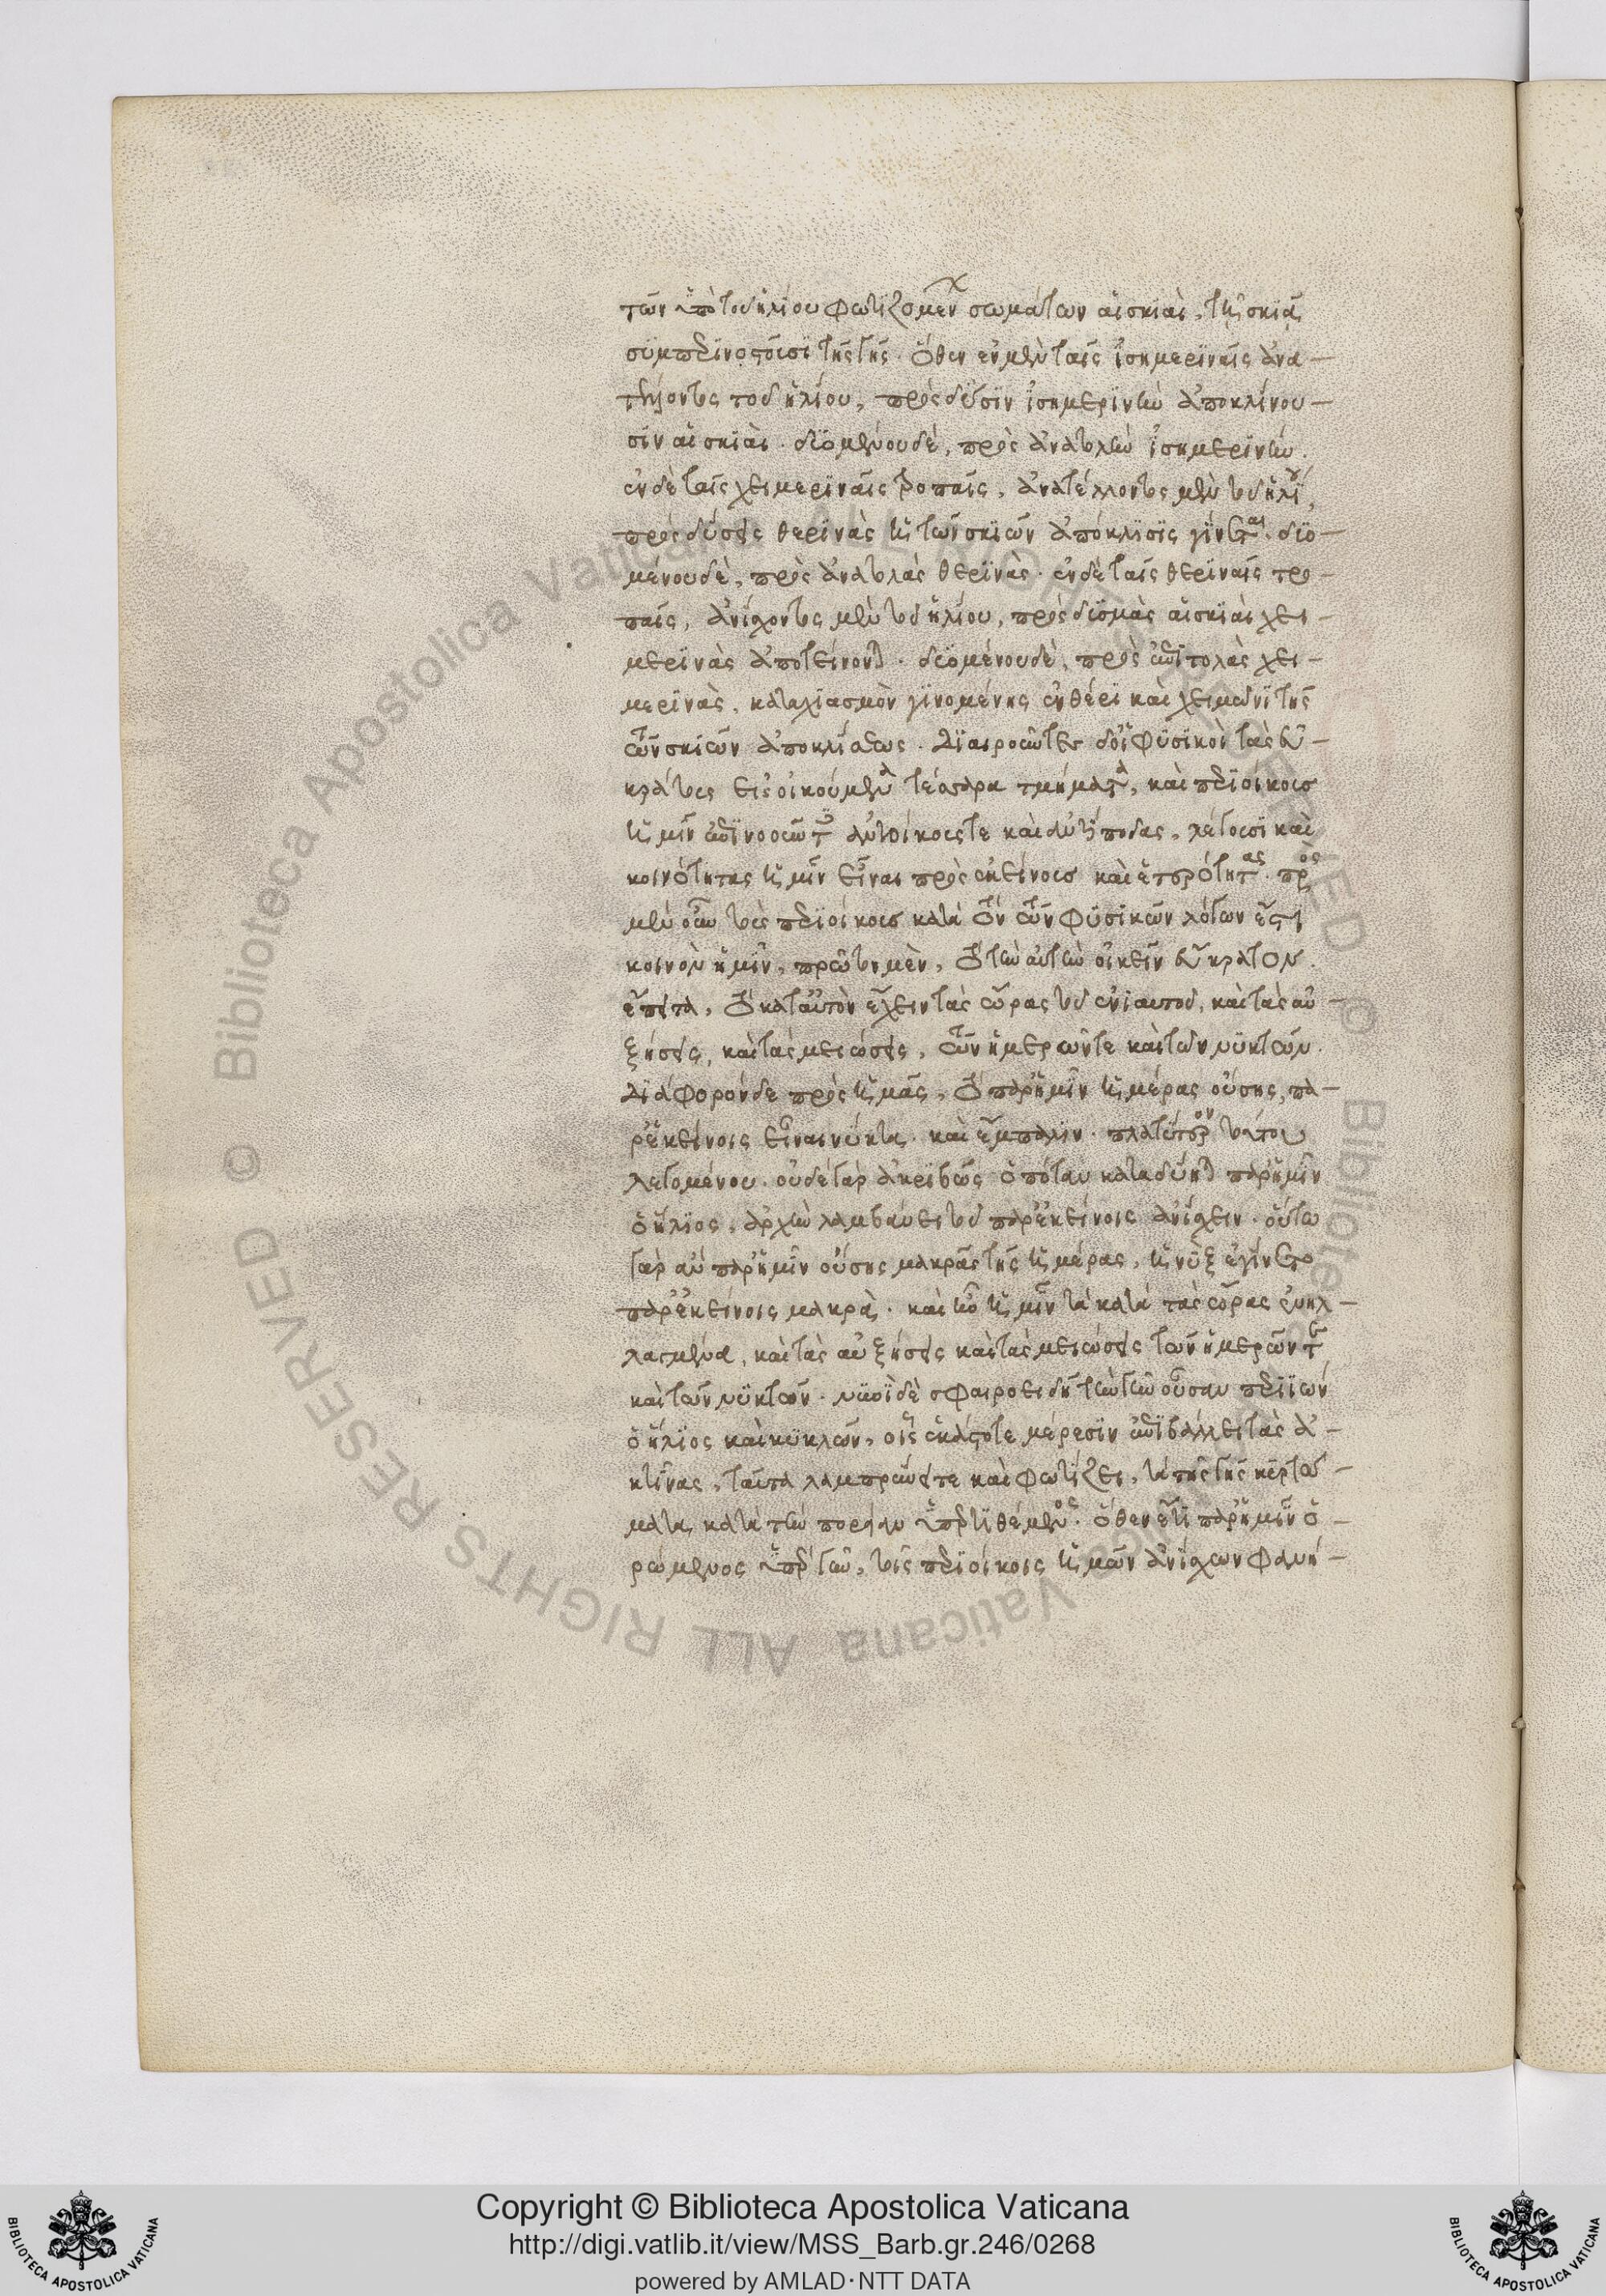 τῶν ὑπὸ τοῦ ἡλίου φωτιζομένων σωμάτων αἱ σκιαὶ, τῇ σκιᾷ
συμπερινοστοῦσι τῆς γῆς. ὅθεν ἐν μὲν ταῖς ἰσημεριναῖς ἀνα-
σχόντος τοῦ ἡλίου, πρὸς δύσιν ἰσημερινὴν ἀποκλίνου-
σιν αἱ σκιαὶ. δυομένου δὲ, πρὸς ἀνατολὴν ἰσημερινὴν.
ἐν δὲ ταῖς χειμεριναῖς τροπαῖς, ἀνατέλλοντος μὲν τοῦ ἡλίου,
πρὸς δύσεις θερινὰς ἡ τῶν σκιῶν ἀπόκλισις γίνεται. δυο-
μένου δὲ, πρὸς ἀνατολὰς θερινὰς. ἐν δὲ ταῖς θεριναῖς τρο-
παῖς, ἀνίσχοντος μὲν τοῦ ἡλίου, πρὸς δυσμὰς αἱ σκιαὶ χει-
μερινὰς ἀποτείνονται. δυομένου δὲ, πρὸς ἐπιτολὰς χει-
μερινὰς, κατὰ χιασμὸν γινομένης ἐν θέρει καὶ χειμῶνι τῆς
τῶν σκιῶν ἀποκλίσεως. Διαιροῦντες δ' οἱ φυσικοὶ τὰς εὐ-
κράτους εἰς οἰκούμενα τέσσαρα τμήματα, καὶ περιοίκους
ἡμῖν ἐπινοοῦντες ἀντοίκους τε καὶ ἀντίποδας, λέγουσι καὶ
κοινότητας ἡμῖν εἶναι πρὸς ἐκείνους καὶ ἑτερότητας. πρὸς
μὲν οὖν τοὺς περιοίκους κατὰ τὸν τῶν φυσικῶν λόγον ἔστι
κοινὸν ἡμῖν, πρῶτον μὲν, τὸ τὴν αὐτὴν οἰκεῖν εὔκρατον.
ἔπειτα, τὸ κατ' αὐτὸν ἔχειν τὰς ὥρας τοῦ ἐνιαυτοῦ, καὶ τὰς αὐ-
ξήσεις, καὶ τὰς μειώσεις, τῶν ἡμερῶν τε καὶ τῶν νυκτῶν.
Διάφορον δὲ πρὸς ἡμᾶς, τὸ παρ' ἡμῖν ἡμέρας οὔσης, πα-
ρ' ἐκείνοις εἶναι νύκτα. καὶ ἔμπαλιν. πλατύτερον τούτου
λεγομένου. οὐδὲ γὰρ ἀκριβῶς ὁπόταν καταδύηται παρ' ἡμῖν
ὁ ἥλιος, ἀρχὴν λαμβάνει τοῦ παρ' ἐκείνοις ἀνίσχειν. οὕτω
γὰρ ἂν παρ' ἡμῖν οὔσης μακρᾶς τῆς ἡμέρας, ἡ νὺξ ἐγίνετο
παρ' ἐκείνοις μακρὰ. καὶ ἦν ἡμῖν τὰ κατὰ τὰς ὥρας ἐνηλ-
λαγμένα, καὶ τὰς αὐξήσεις καὶ τὰς μειώσεις τῶν ἡμερῶν τε
καὶ τῶν νυκτῶν. νυνὶ δὲ σφαιροειδῆ τὴν γῆν οὖσαν περιϊὼν
ὁ ἥλιος καὶ κυκλῶν, οἷς ἑκάστοτε μέρεσιν ἐπιβάλλει τὰς ἀ-
κτῖνας, ταῦτα λαμπρύνει τε καὶ φωτίζει, τὰ τῆς γῆς κυρτώ-
ματα κατὰ τὴν πορείαν ὑπερτιθέμενος. ὅθεν ἔτι παρ' ἡμῖν ὁ-
ρώμενος ὑπὲρ γῆν, τοῖς περιοίκοις ἡμῶν ἀνίσχων φανή-
Copyright © Biblioteca Apostolica Vaticana
http://digi.vatlib.it/view/MSS_Barb.gr.246/0268
powered by AMLAD·NTT DATA